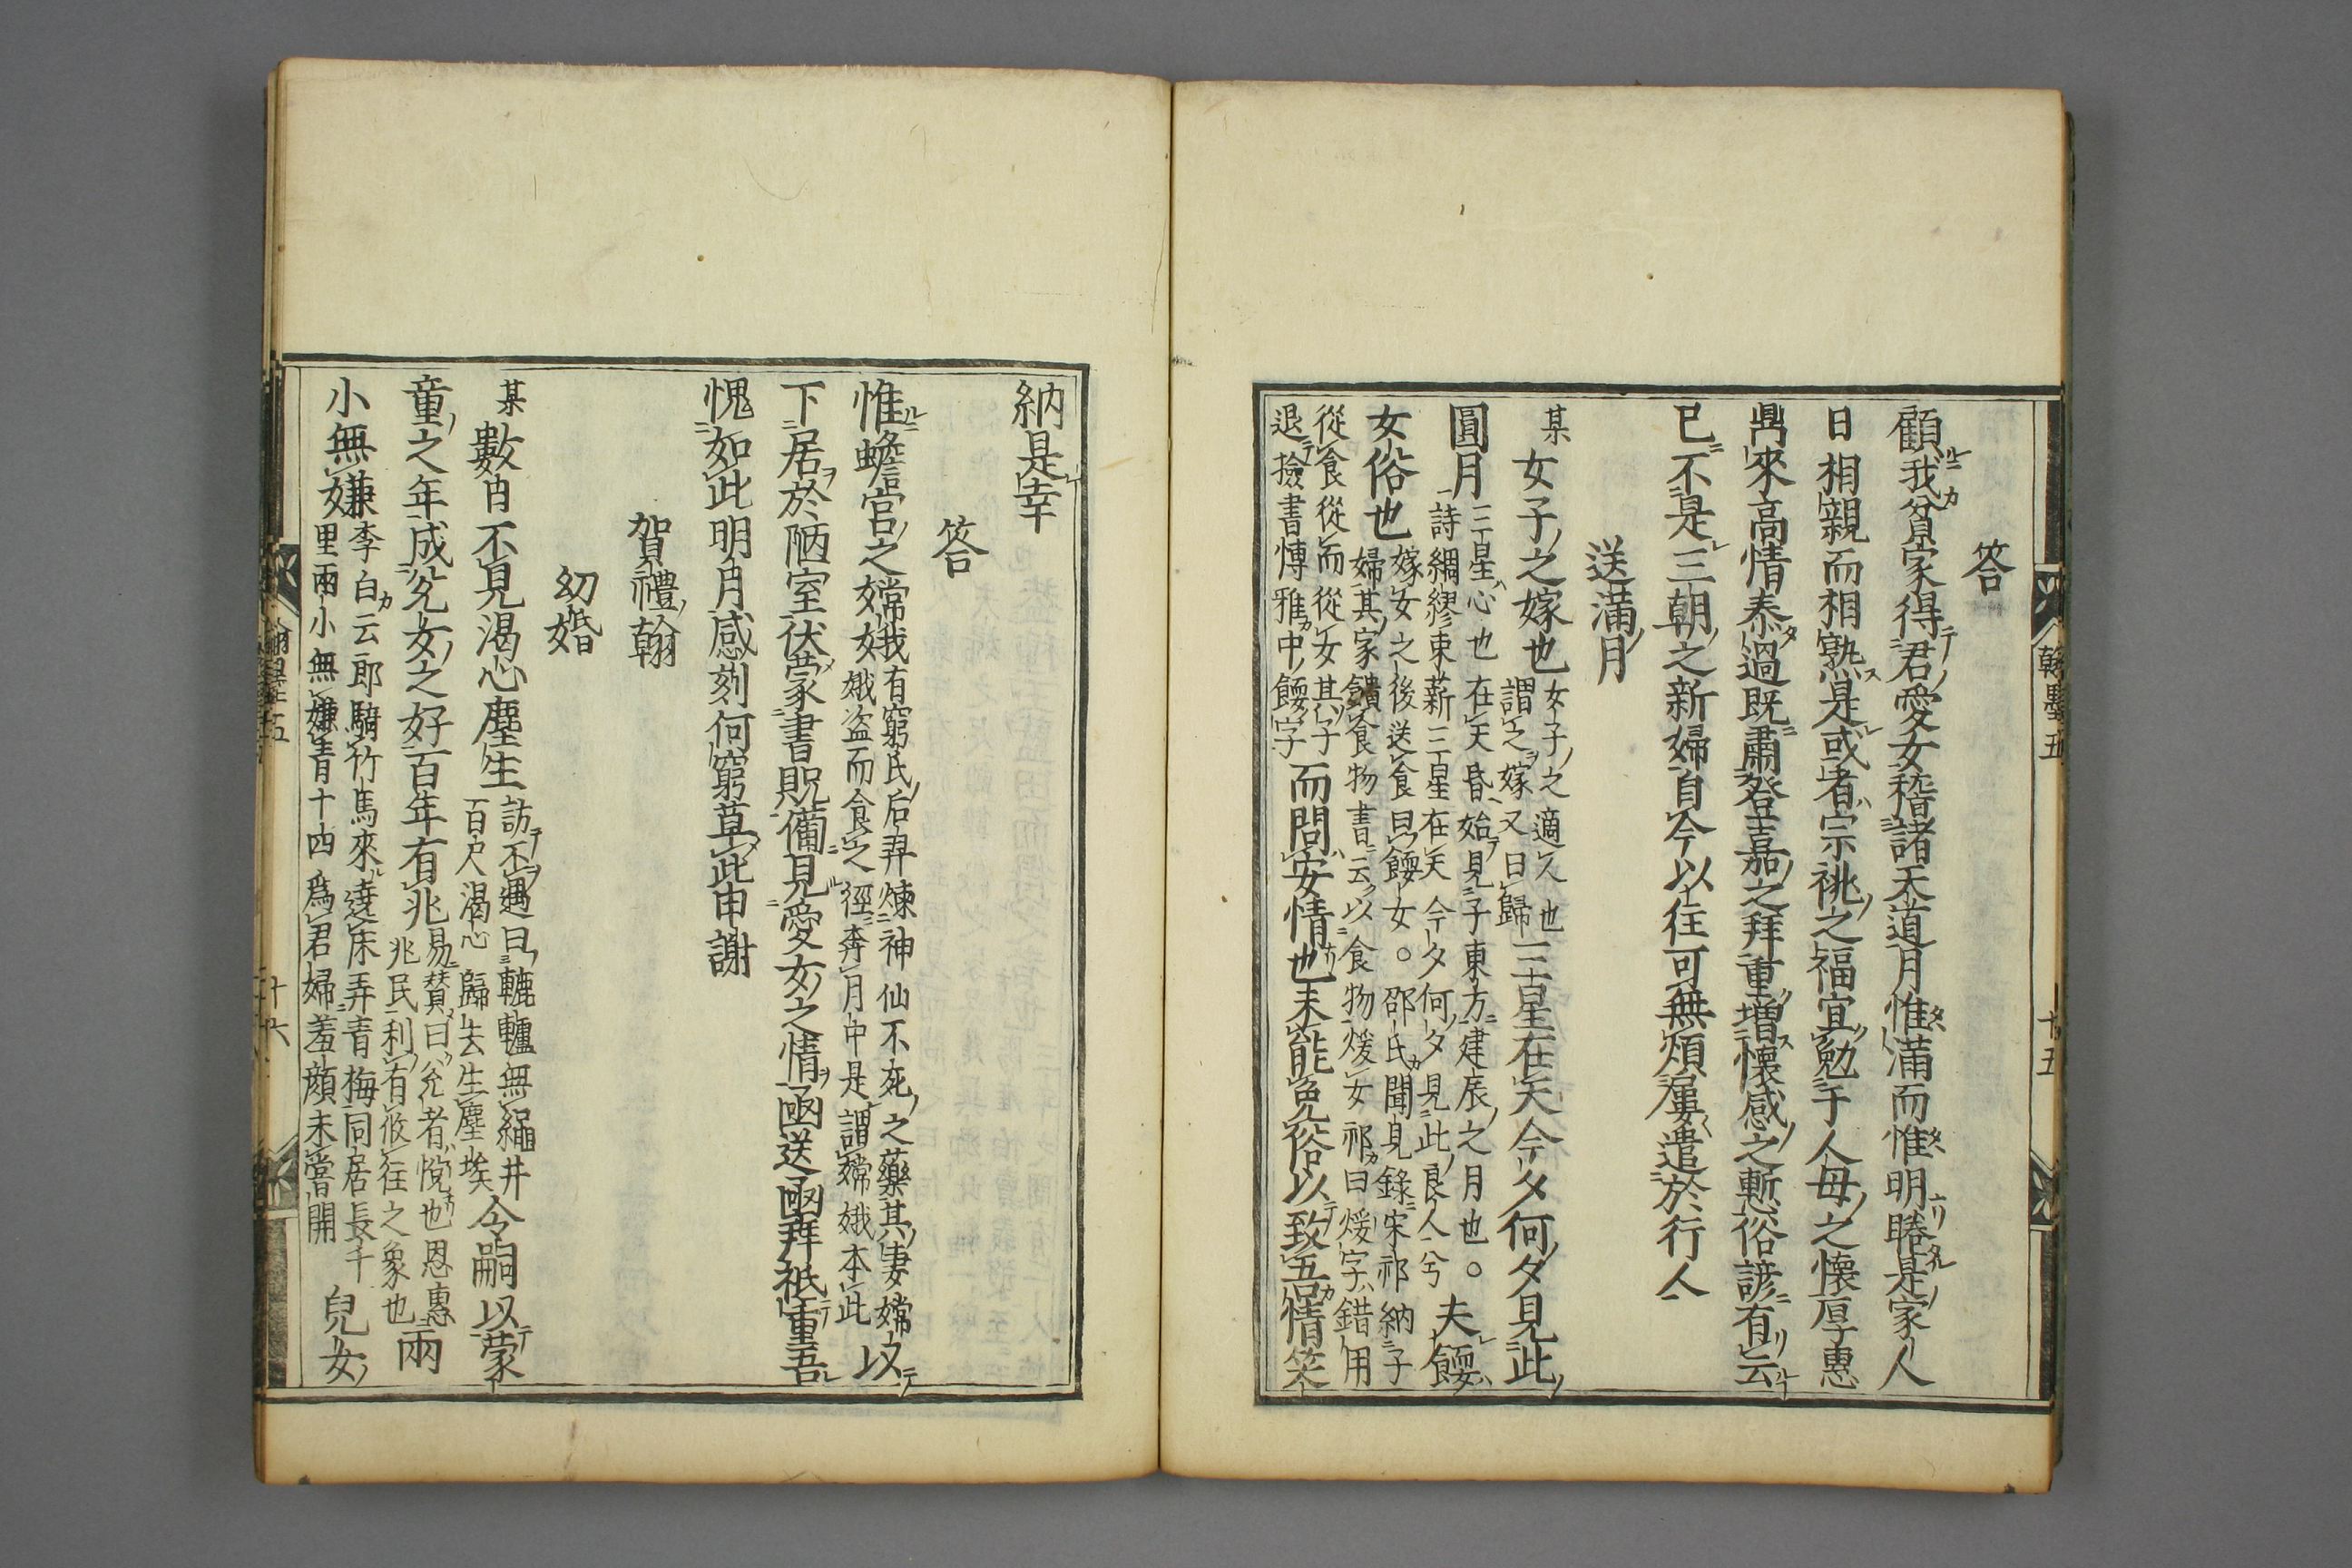 答
顧我貧家得君愛女稽諸天道月惟滿而惟明睠是家人
日相親而相熟是或者宗祧之福宜勉于人毋之懷厚惠
鼎來高情泰過既肅登嘉之拜重增懷感之慙俗諺有云
已不是三朝之新婦自今以往可無煩屢遣於行人
送滿月
某女子之嫁也女子之適人也
謂之嫁又曰歸三星在天今夕何夕見此
圓月三星心也在天昏始見子東方建辰之月也。
詩綢繆束薪三星在天今夕何夕見此良人兮夫餪
女俗也嫁女之後送食曰餪女。邵氏聞見錄宋祁納子
婦其家饋食物書云以食物煖女祁曰煖字錯用
從食從而從女其子
退撿書愽雅中餪字而問安情也未能免俗以致吾情笑
翰墨五
十五
納是幸
答
惟蟾宮之嫦娥有窮氏后羿煉神仙不死之藥其妻嫦
娥盗而食之徑奔月中是謂嫦娥本此以
下居於陋室伏蒙書貺備見愛女之情函送函拜祗重吾
愧如此明月感刻何窮草此申謝
賀禮翰
幼婚
某數日不見渴心塵生訪不遇曰轆轤無繩井
百尺渴心歸去生塵埃令嗣以蒙
童之年成兊女之好百年有兆易賛曰兊者悅也恩惠
兆民利有攸往之象也兩
小無嫌李白云郎騎竹馬來遶床弄青梅同居長千
里兩小無嫌青十四爲君婦羞顔未嘗開兒女
翰墨五
十六